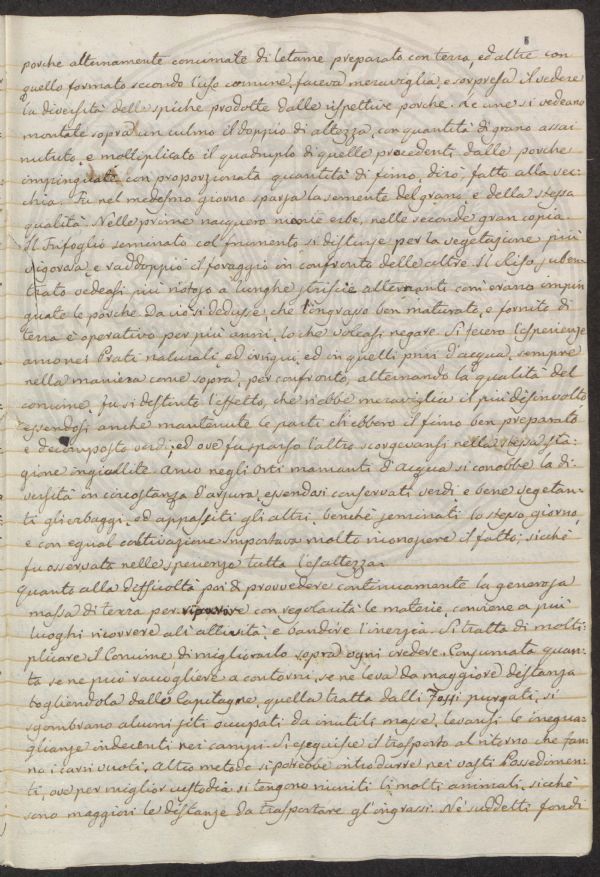 8
porche alternamente concimate di letame preparato con terra, ed altre con
quello formato secondo l'uso comune, faceva meraviglia, e sorpresa il vedere
la diversità delle spiche prodotte dalle rispettive porche. Le une si vedeano
montate sopra un culmo il doppio di altezza, con quantità di grano assai
nututo, e moltiplicato il quadruplo di quelle procedenti dalle porche
impinguate con proporzionata quantità di fimo, dirò, fatto alla vec-
chia. Fu nel medesimo giorno sparsa la semente del grano, e della stessa
qualità. Nelle prime nacquero niente erbe, nelle seconde gran copia.
Il Trifoglio seminato col frumento si distinse per la vegetazione più
vigorosa, e raddoppiò il foraggio in confronto delle altre. Il Riso suben-
trato vedeasi più rigogo a lunghe striscie alternanti com'erano impin
guate le porche. Da ciò si dedusse che l'ingrasso ben maturato, e fornito di
terra è operativo per più anni, lo che voleasi negare. Si fecero l'esperienze
anco nei Prati naturali, ed irrigui, ed in quelli privi d'acqua, sempre
nella maniera come sopra, per confronto, alternando la qualità del
concime. Fu si distinto l'effetto, che n'ebbe meraviglia il più disinvolto
essendosi anche mantenute le parti ch'ebbero il fimo ben preparato
e decomposto verdi, ed ove fu sparso l'altro scorgevansi nella stessa sta-
gione ingiallite. Anco negli Orti mancanti d'Acqua si conobbe la di-
versità in circostanza d'arsura, essendosi conservati verdi e bene vegetan-
ti gli erbaggi, ed appassiti gli altri, benchè seminati lo stesso giorno,
e con egual coltivazione. Importava molto il fatto; sicchè
fu osservata nelle sperienze tutta l'esattezza.
Quanto alla difficoltà poi di provvedere continuamente la generosa
massa di terra per con regolarità le materie, conviene a più
luoghi ricorrere all'attività, e bandire l'inerzia. Si tratta di molti-
plicare il Concime, di migliorarlo sopra ogni credere. Consumata quan-
ta se ne può raccogliere a contorni, se ne leva da maggiore distanza
togliendola dalle Capitagne, quella tratta dalli Fossi purgati, si
sgombrano alcuni siti occupati da inutili masse, levansi le inegua-
glianze indecenti nei campi. Si eseguisce il trasporto al ritorno che fan-
no i carri vuoti. Altro metodo si potrebbe introdurre nei vasti Possedimen-
ti, ove per miglior custodia si tengono uniti li molti animali, sicchè
sono maggiori le distanze da trasportare gl'ingrassi. Ne' suddetti fondi